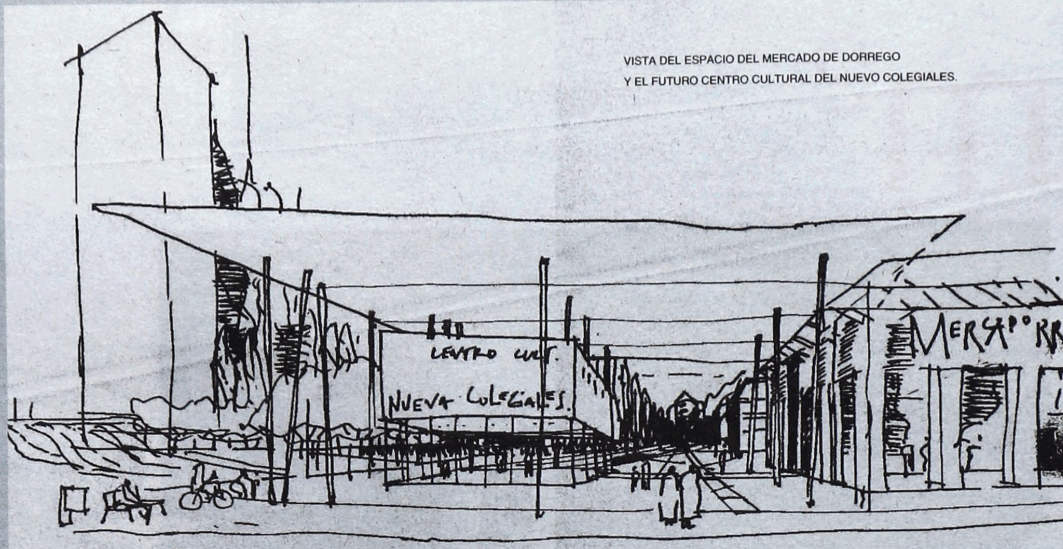 VISTA DEL ESPACIO DEL MERCADO DE DORREGO
Y EL FUTURO CENTRO CULTURAL DEL NUEVO COLEGIALES.
CENTRO CULT.
NUEVA COLEGIALES.